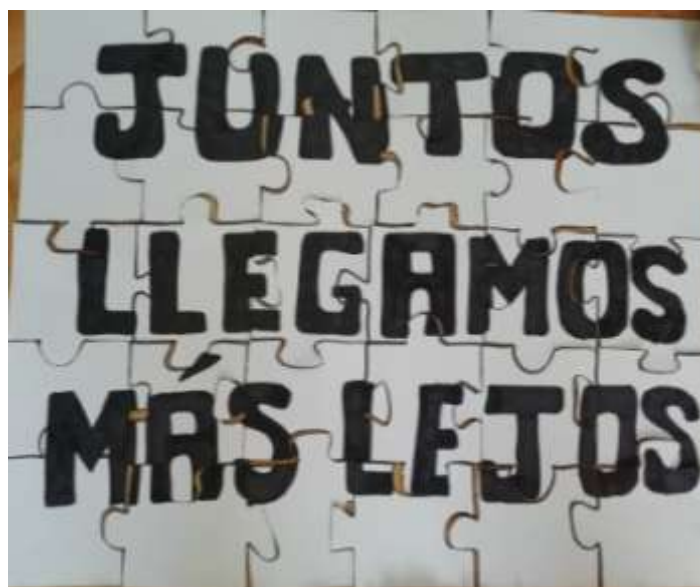 JUNTOS
LLEGAMOS
MÁS LEJOS